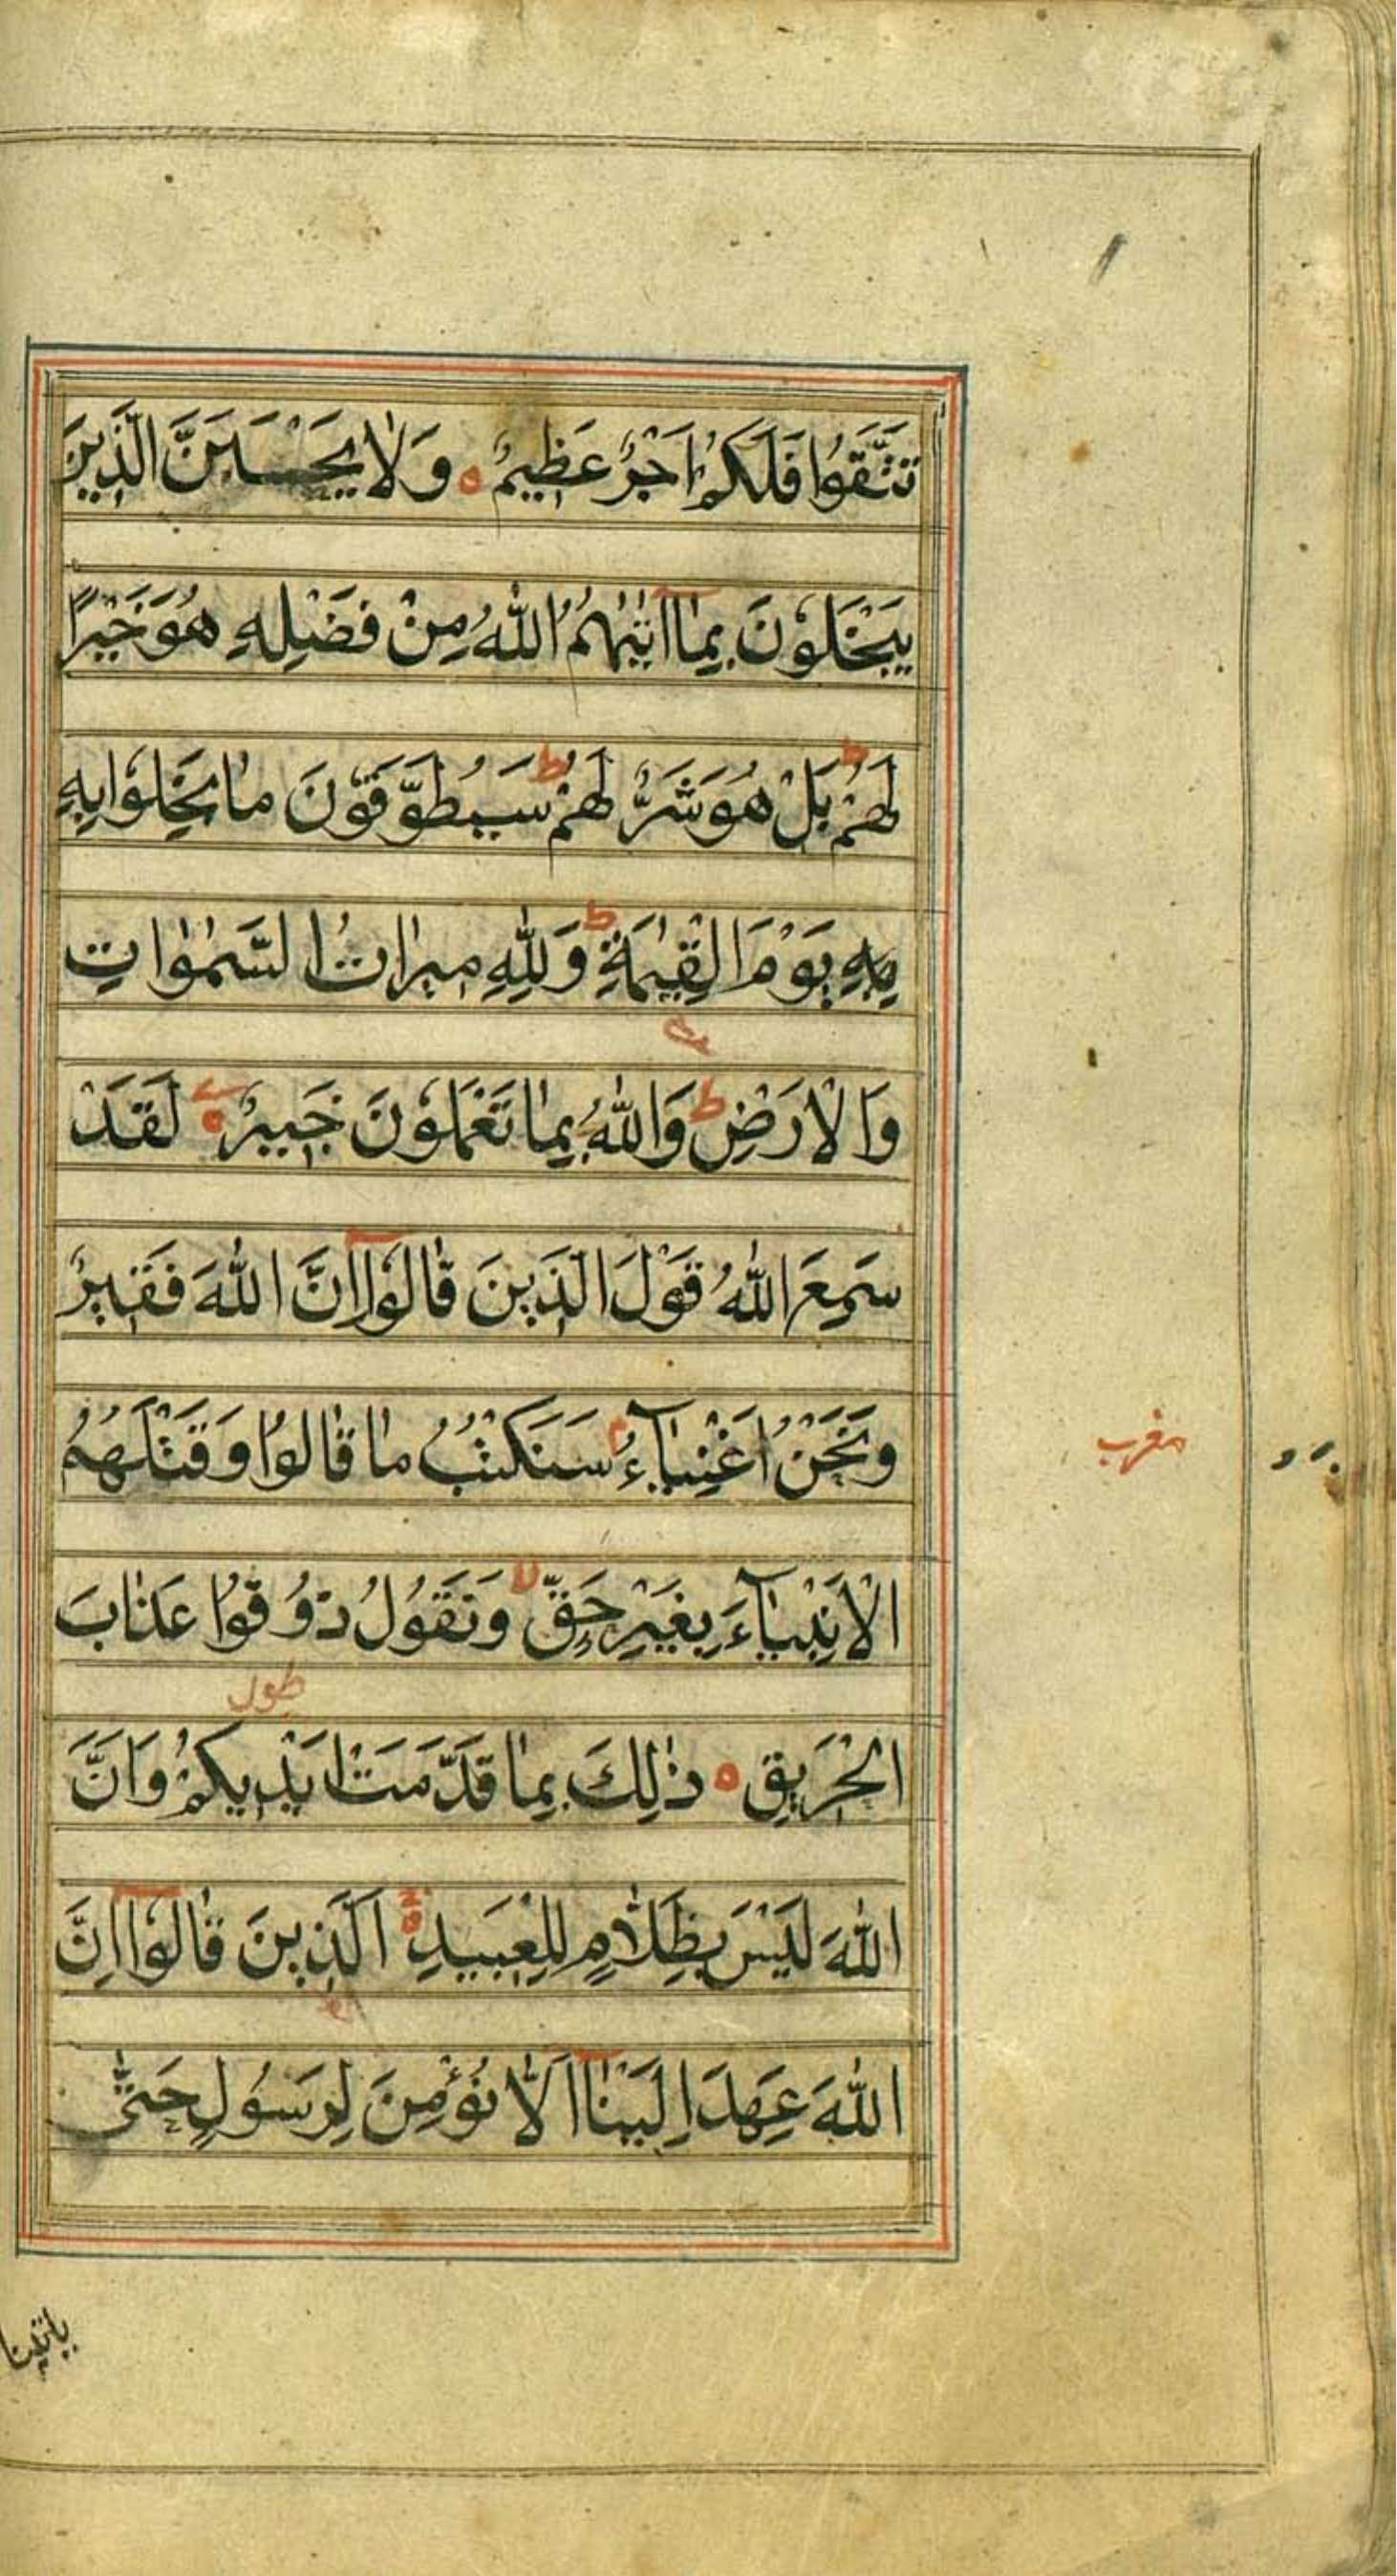 تَتَّقُوا فَلَكُمْ اَجْرٌ عَظِيمٌ ه وَلَا يَحْسَبَنَّ الَّذِينَ
يَبْخَلُوْنَ بِمَا اٰتٰىهُمُ اللّٰهُ مِنْ فَضْلِهِ هُوَ خَيْرًا
ط ط
لَهُمْ بَلْ هُوَ شَرٌّ لَهُمْ سَيُطَوَّقُوْنَ مَا بَخِلُوْا بِهِ
ط
بِهِ يَوْمَ الْقِيٰمَةِ وَلِلّٰهِ مِيرَاثُ السَّمٰوَاتِ
ط
وَالْاَرْضِ وَاللّٰهُ بِمَا تَعْمَلُوْنَ خَبِيرٌ ه لَقَدْ
سَمِعَ اللّٰهُ قَوْلَ الَّذِينَ قَالُوْا اِنَّ اللّٰهَ فَقِيرٌ
م
وَنَحْنُ اَغْنِيَآءُ سَنَكْتُبُ مَا قَالُوا وَقَتْلَهُمُ
مغرب
لا
الْاَنْبِيَآءَ بِغَيْرِ حَقٍّ وَنَقُولُ ذُوقُوا عَذَابَ
طول
الْحَرِيقِ ه ذٰلِكَ بِمَا قَدَّمَتْ اَيْدِيكُمْ وَاَنَّ
اللّٰهَ لَيْسَ بِظَلَّامٍ لِلْعَبِيدِ ه اَلَّذِينَ قَالُوْا اِنَّ
اللّٰهَ عَهِدَ اِلَيْنَا اَلَّا نُؤْمِنَ لِرَسُولٍ حَتّٰى
ياتينا